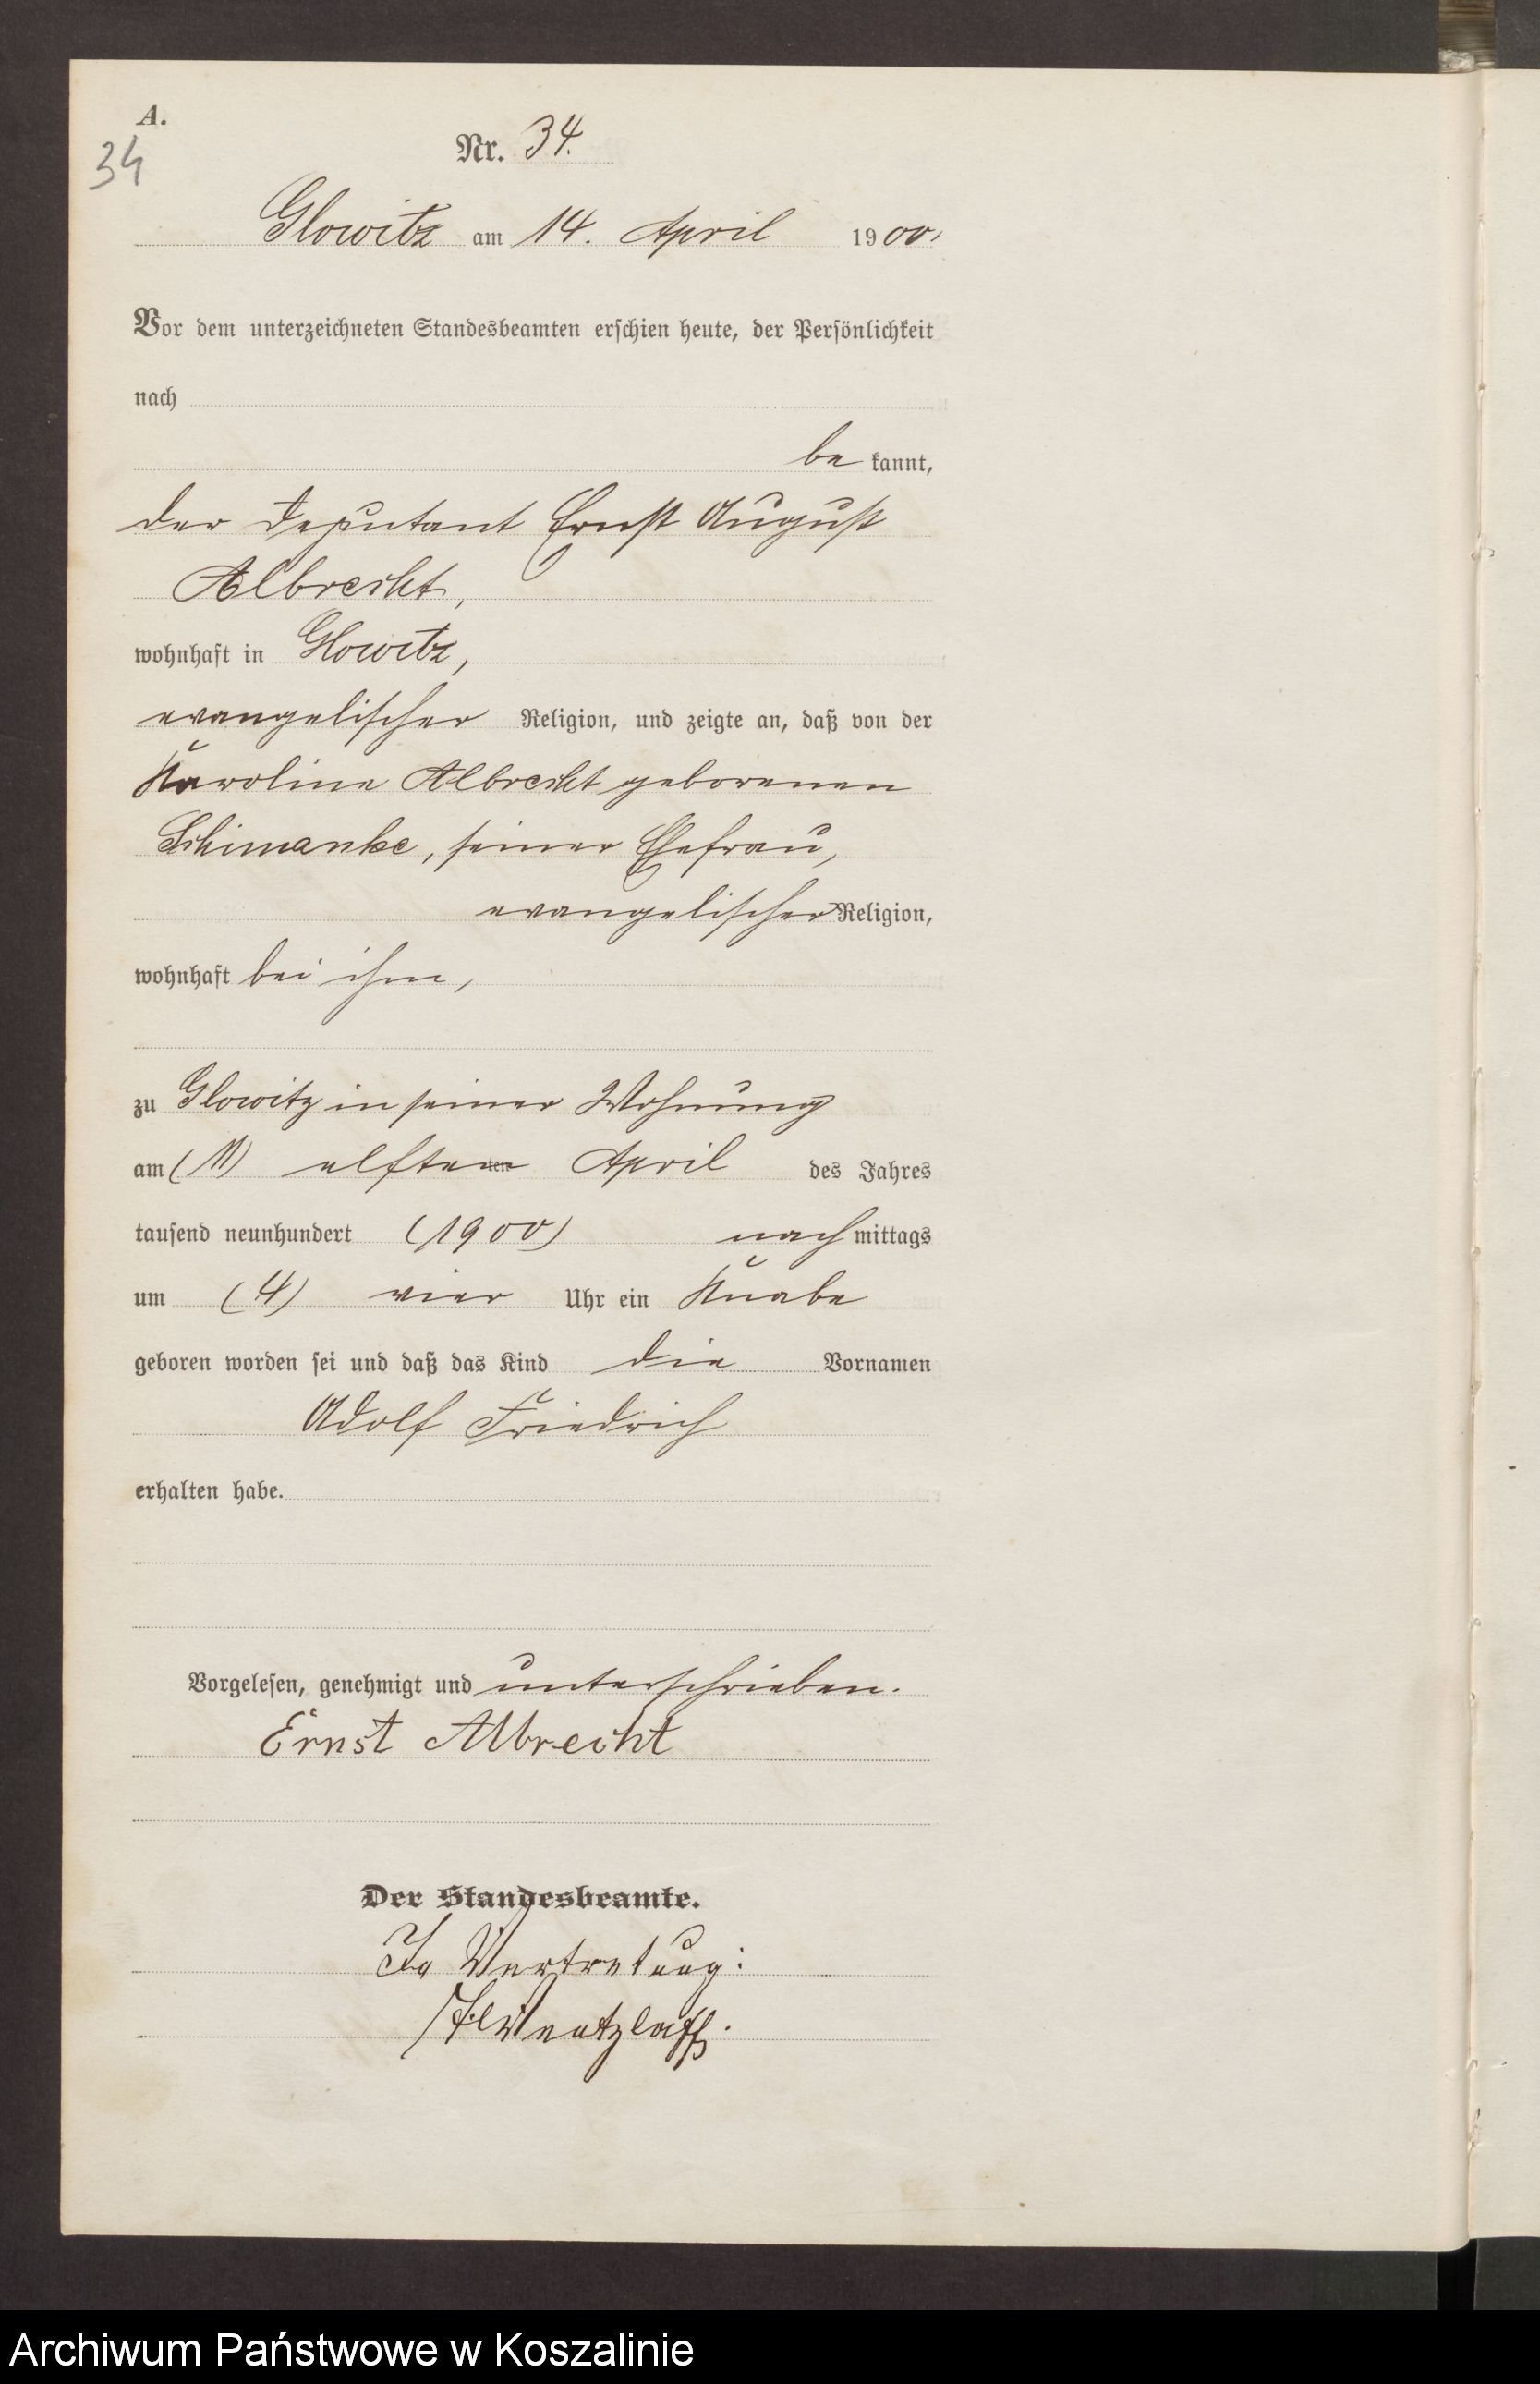 A.
34
Nr. 34.
Glowitz am 14. April 1900.
Vor dem unterzeichneten Standesbeamten erschien heute, der Persönlichkeit
nach
be kannt,
der Deputant Ernst August
Albrecht,
wohnhaft in Glowitz,
evangelischer Religion, und zeigte an, daß von der
Karoline Albrecht geborenen
Schimanke, seiner Ehefrau,
evangelischer Religion,
wohnhaft bei ihm,
zu Glowitz in seiner Wohnung
am (11) elften ten April des Jahres
tausend neunhundert (1900) nach mittags
um (4) vier Uhr ein Knabe
geboren worden sei und daß das Kind die Vornamen
Adolf Friedrich
erhalten habe.
Vorgelesen, genehmigt und unterschrieben.
Ernst Albrecht
Der Standesbeamte.
In Vertretung:
Wentzlaff.
Archiwum Państwowe w Koszalinie